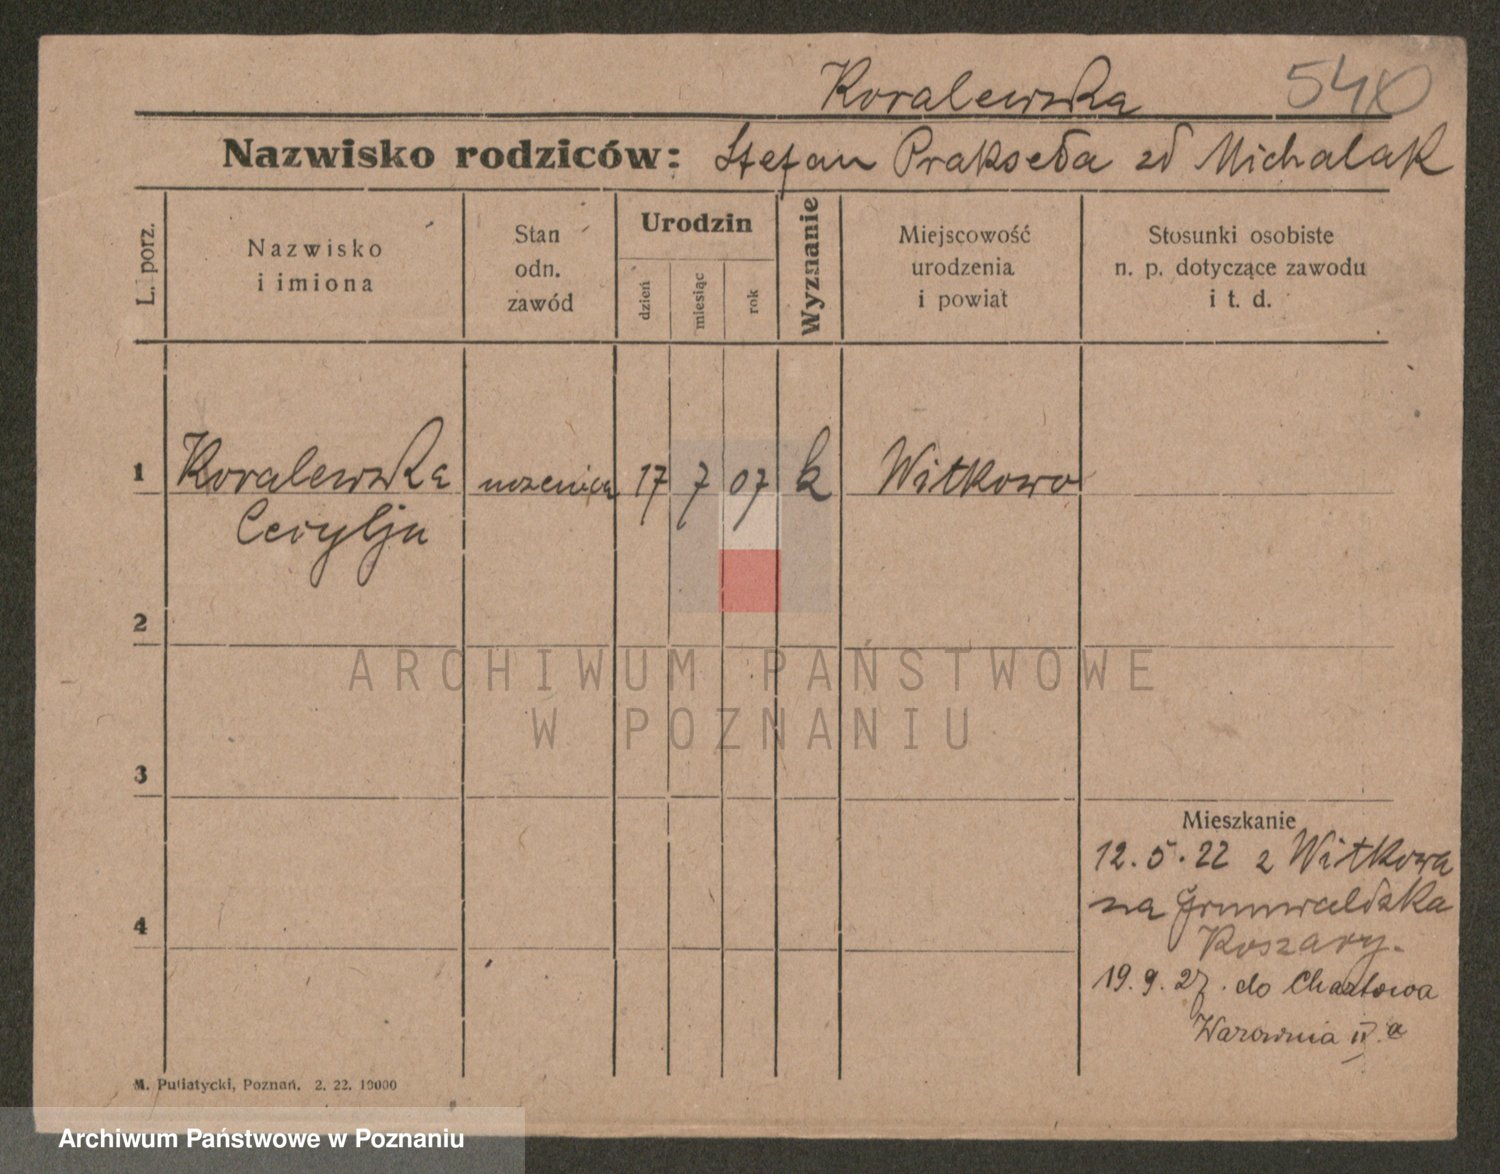 Koralewska 540
Nazwisko rodziców: Stefan Prakseda zd Michalak
L. porz.
Nazwisko
i imiona
Stan
odn.
zawód
Urodzin
dzień
miesiąc
rok
Wyznanie
Miejscowość
urodzenia
i powiat
Stosunki osobiste
n. p. dotyczące zawodu
i t. d.
1 Koralewska uczenica 17 7 07 k Witkowo
Cecylja
2
ARCHIWUM PAŃSTWOWE
W POZNANIU
3
Mieszkanie
12.5.22 z Witkowa
na Grunwaldzka
Koszary.
4
19.9.27. do Chartowa
Warownia IIa
M. Putiatycki, Poznań. 2. 22. 10000
Archiwum Państwowe w Poznaniu